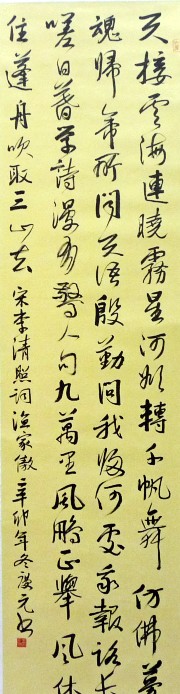 天接雲濤連曉霧星河欲轉千帆舞仿佛夢
魂歸帝所聞天語殷勤問我歸何處我報路長
嗟日暮学詩漫有驚人句九萬里風鵬正舉風休
住蓬舟吹取三山去 宋李清照詞漁家傲 辛卯年冬慶元書